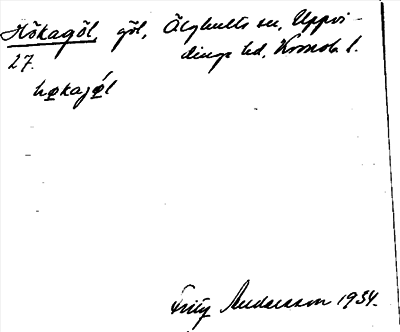 Hökagöl, göl, Älghults sn, Uppvi-
27. dinge hd, Kronob. l.
høkajǿl
Fritz Andersson 1934.